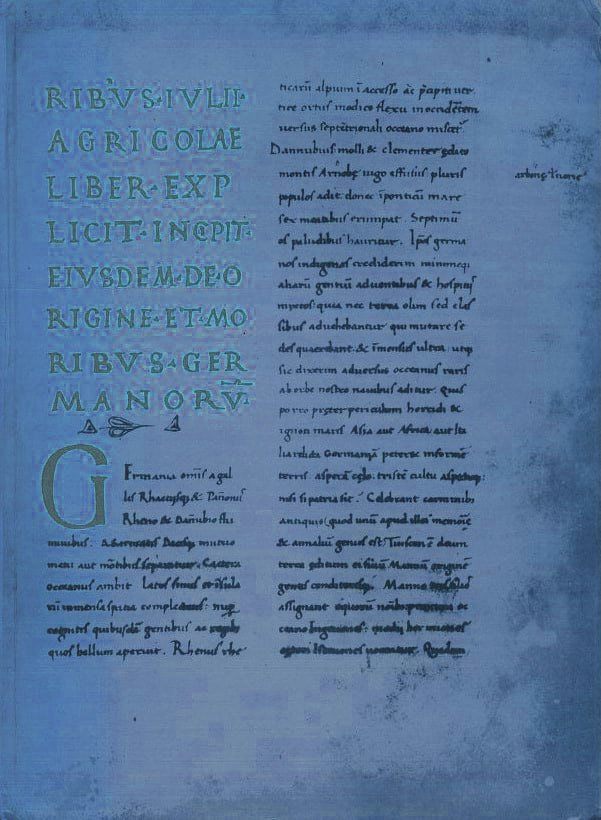 RIBVS·IVLII·
AGRICOLAE
LIBER·EXP
LICIT·INCIPIT·
EIVSDEM·DE·O
RIGINE·ET·MO
RIBVS·GER
MANORV̄·
Germania om̄is a gal
lis Rhaetisq; & Pānoniis
Rheno & Dānubio flu
minibus: a Sarmatis Dacisq; mutuo
metu aut mōtibus separatur. Caetera
oceanus ambit Latos sinus et īsula
rū immensa spatia complectens: nup̄
cognitis quibusdā gentibus ac regib;
quos bellum aperuit. Rhenus rhe
ticarū alpium ī accesso āc p̄cipiti ver
tice ortus modico flexu in occidētem
versus septētrionali oceano miscet̄
Dannubius molli & clementer edito
montis Arnobę iugo effusus pluris
populos adit donec ī ponticū mare
sex meatibus erumpat. Septimū
os paludibus hauritur. Ip̄os germa
nos indigenas crediderim minimeq;
aliarū gentiū adventibus & hospitiis
mixtos: quia nec terra olim sed clas
sibus advehebantur qui mutare se
des quaerebant & īmensus ultra. utq;
sic dixerim adversus occeanus raris
ab orbe nostro navibus aditur. Quis
porro pręter periculum horridi &
ignoti maris Asia aut Africa aut Ita
lia relicta Germaniā peteret informē
terris. asperā cęlo. tristē cultu aspectuq;:
nisi si patria sit. Celebrant carminibs
antiquis (quod unū apud illos memorię
& annaliū genus est) Tuistonē deum
terra editum ei filiū Mannū originē
gentis conditorisq;. Manno
assignant e quorū nōib; proximi o
ceano Ingaevones: medii her
ceteri Istaevones vocentur. Quidam